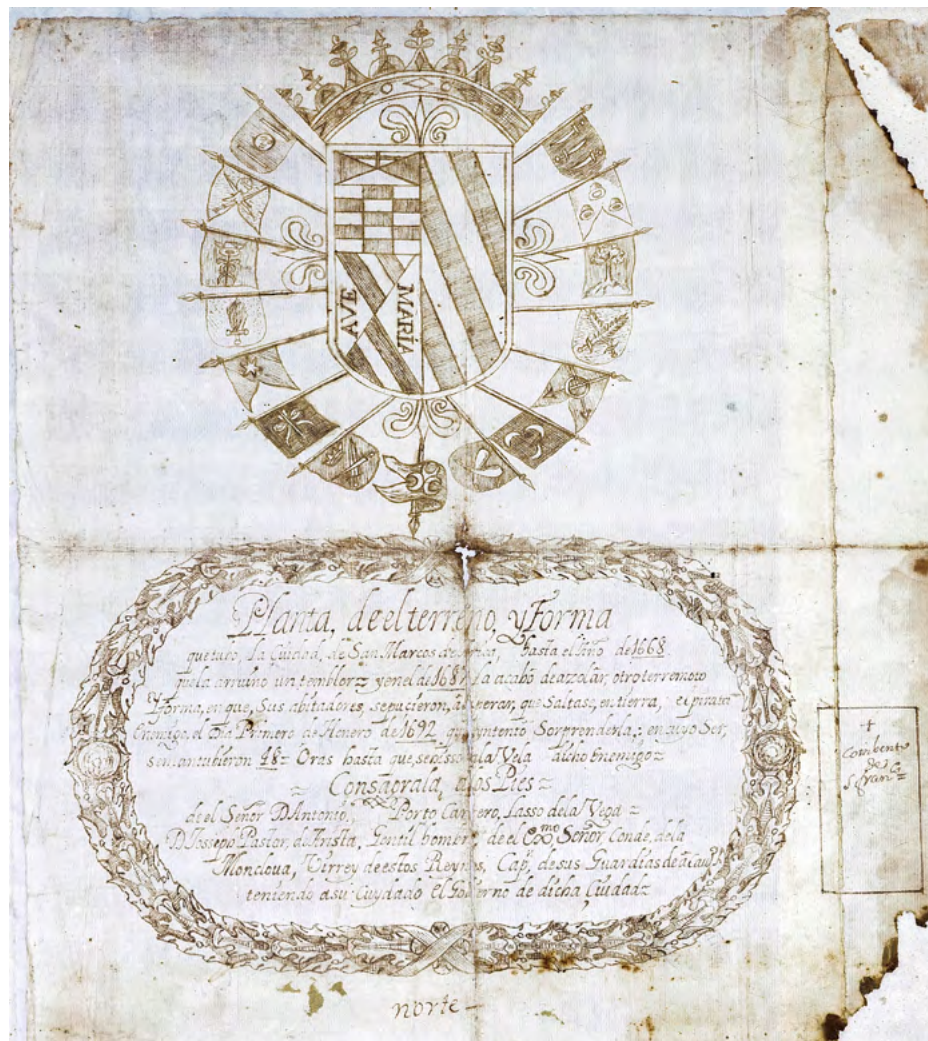 AVE MARIA
Planta, de el terreno, y Forma
que tubo, la Ciudad, de San Marcos de Arica, hasta el año de 1668
que la arruino un temblor= y en el de 1687 la acabó de azolar, otro terremoto
y forma, en que, Sus abitadores, se pucieron, a esperar, que Saltase, en tierra, el pirata
Enemigo, el Dia Primero de Henero de 1692 que yntentó Sorprenderla; en cuyo Ser,
se mantubieron 48= Oras hasta que, se pusso a la Vela dicho Enemigo=
= Conságrala, a los Pies =
de el Señor D. Antonio, Porto Carrero, Lasso de la Vega =
D. Josseph Pastor, de Arista, Gentil hombre de el Exmo Señor, Conde, de la
Moncloua, Virrey de estos Reynos, Capn de sus Guardias de a Cauo
teniendo a su Cuydado el Gouierno de dicha Ciudad=
Combento
de
S Franco=
norte=